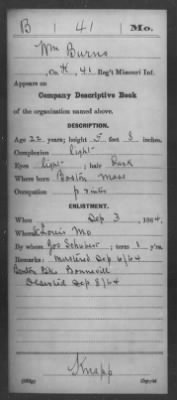 B 41 Mo.
Wm Burns
, Co. K, 41 Reg't Missouri Inf.
Appears on
Company Descriptive Book
of the organization named above.
DESCRIPTION.
Age 22 years; height 5 feet 8 inches.
Complexion light
Eyes light; hair Dark
Where born Boston Mass
Occupation printer
ENLISTMENT.
When Sep 3, 1864.
Where St Louis Mo
By whom Jos Schubert; term 1 y'rs.
Remarks: Mustered Sep 6/64
Benton Bks
Deserted Sep 8/64
Knapp
Copyist